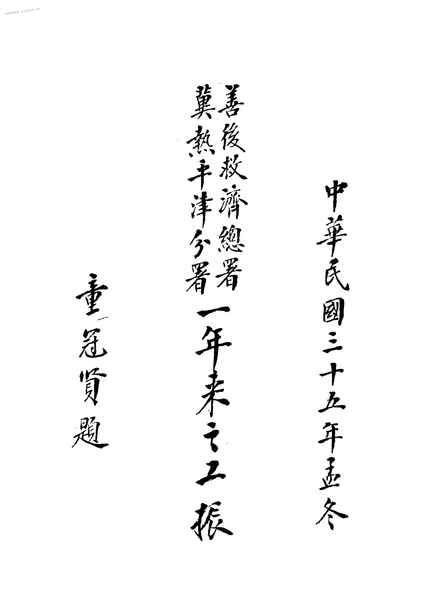 中華民國三十五年孟冬
善後救濟總署
冀熱平津分署
一年来之工振
童冠賢題